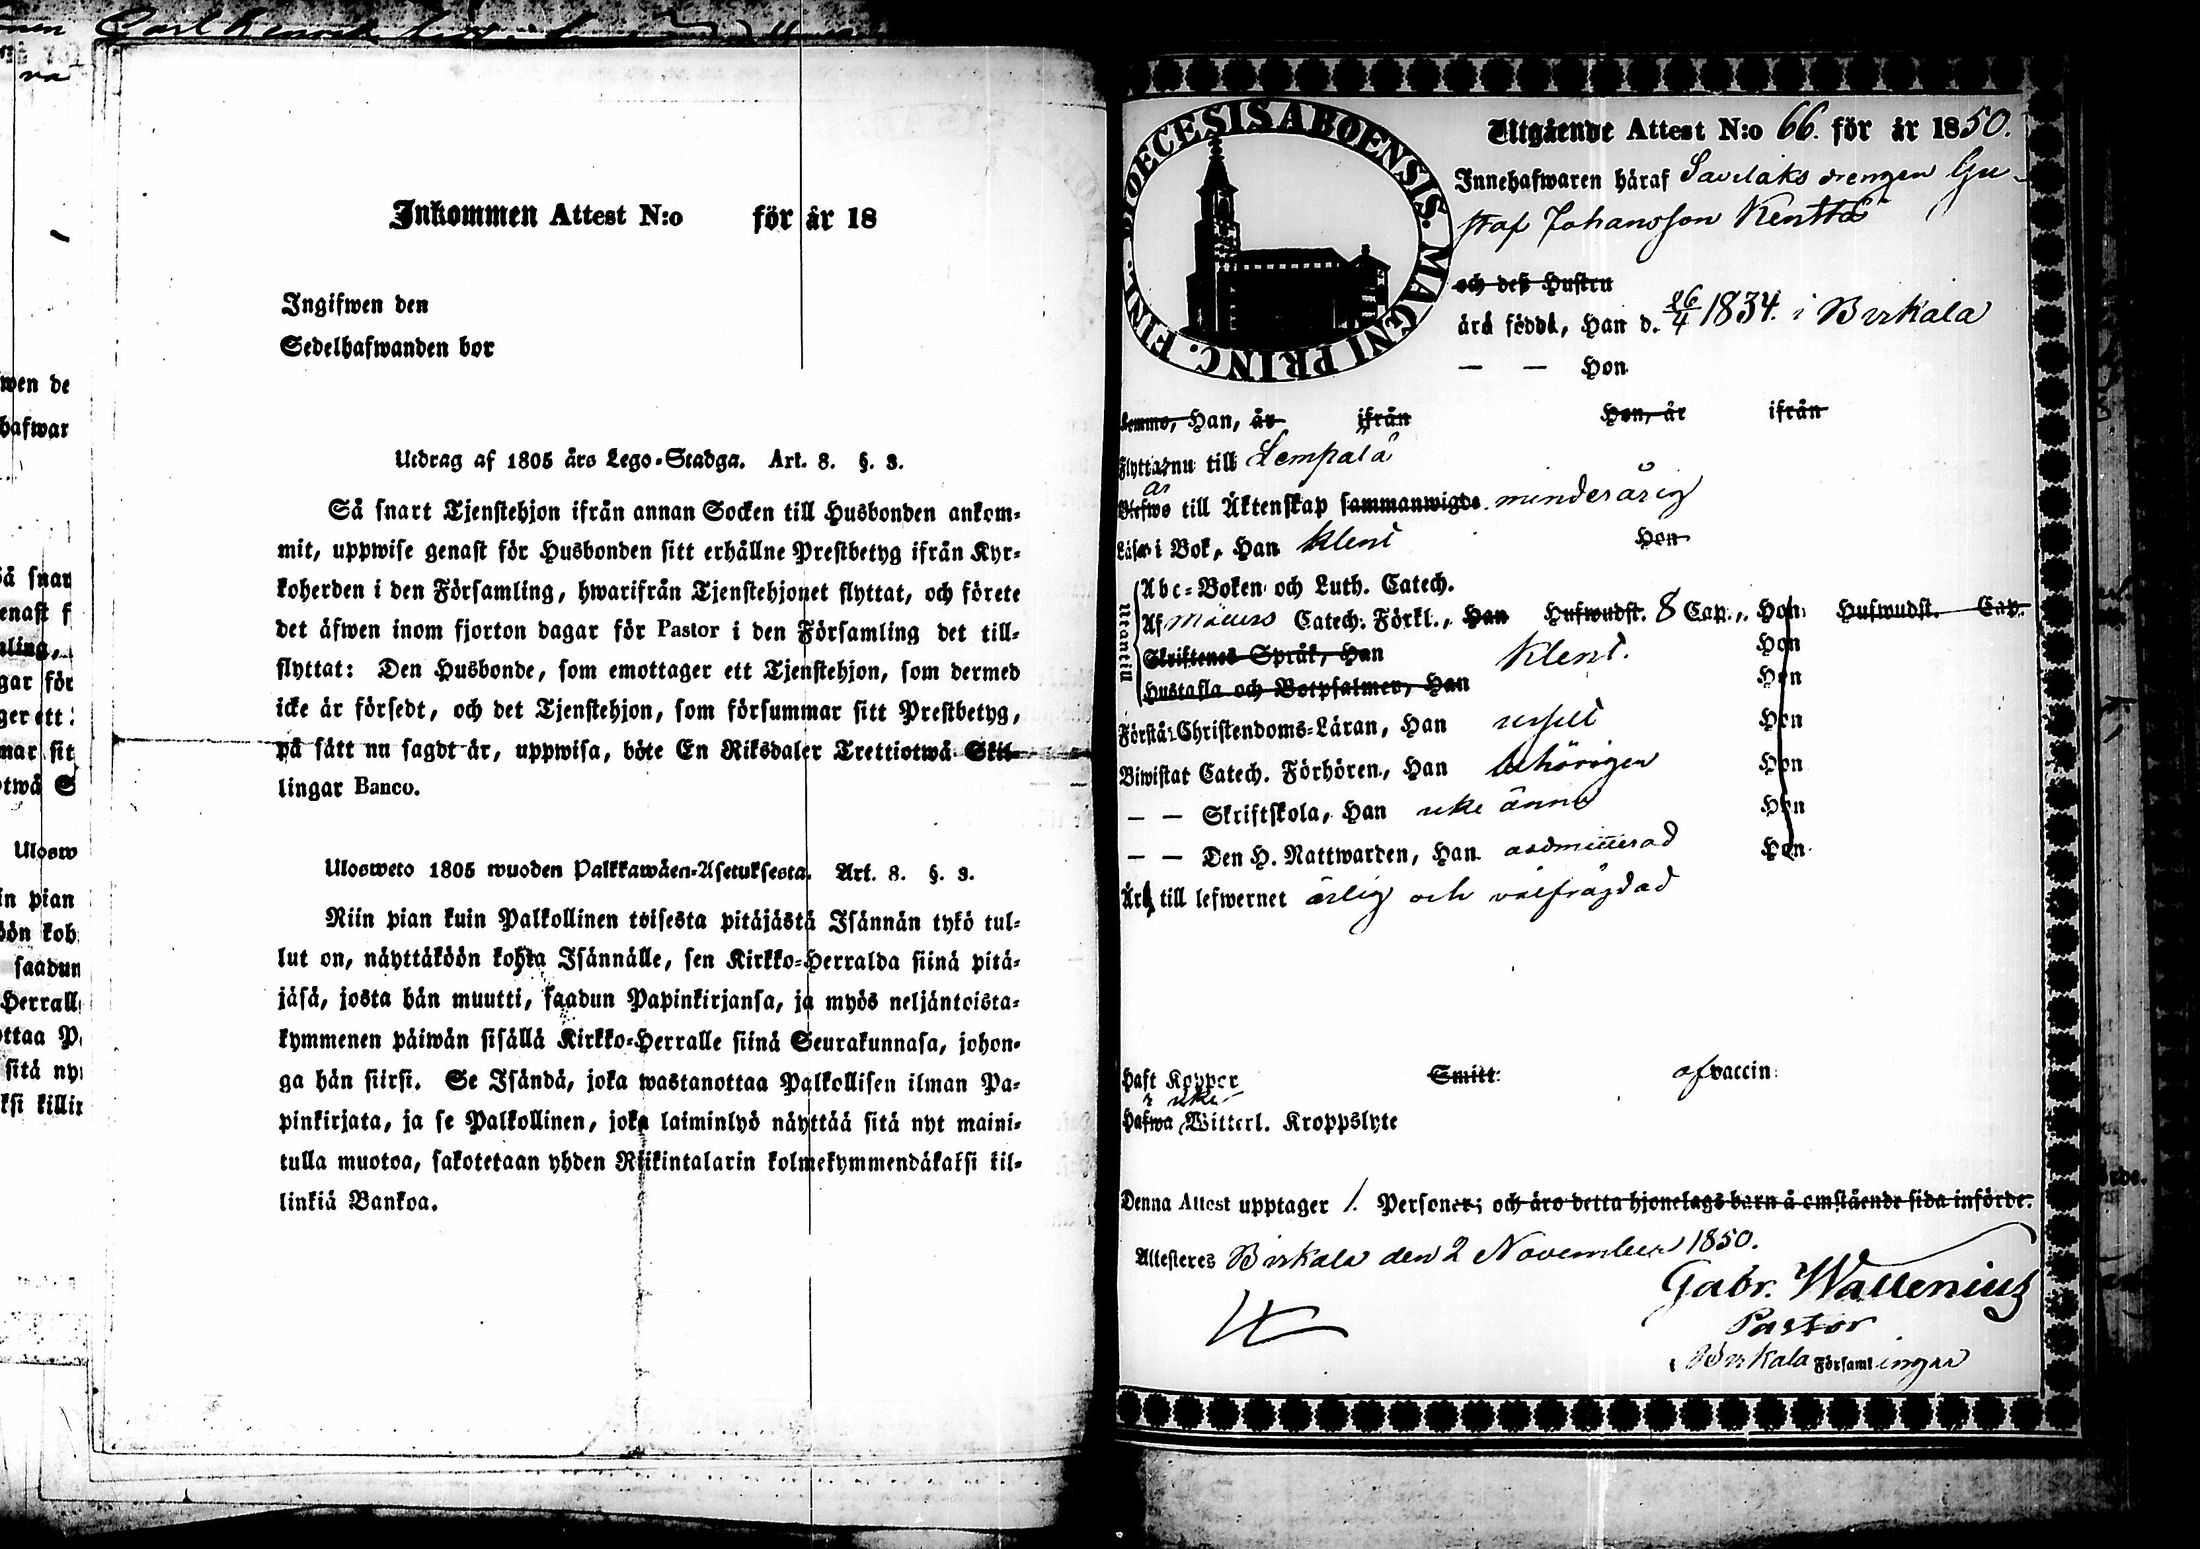 Inkommen Attest N:o för år 18
Ingifwen den
Sedelhafwanden bor
Utdrag af 1805 års Lego-Stadga. Art. 8. §. 3.
Så snart Tjenstehjon ifrån annan Socken till Husbonden ankom-
mit, uppwise genast för Husbonden sitt erhållne Prestbetyg ifrån Kyr-
koherden i den Församling, hwarifrån Tjenstehjonet flyttat, och förete
det äfwen inom fjorton dagar för Pastor i den Församling det till-
flyttat: Den Husbonde, som emottager ett Tjenstehjon, som dermed
icke är försedt, och det Tjenstehjon, som försummar sitt Prestbetyg,
på sätt nu sagdt är, uppwisa, böte En Riksdaler Trettiotwå Skil-
lingar Banco.
Ulosweto 1805 wuoden Palkkawäen-Asetuksesta. Art. 8. §. 3.
Niin pian kuin Palkollinen toisesta pitäjästä Isännän tykö tul-
lut on, näyttäköön kohta Isännälle, sen Kirkko-Herralda siinä pitä-
jäsä, josta hän muutti, saadun Papinkirjansa, ja myös neljäntoista-
kymmenen päiwän sisällä Kirkko-Herralle siinä Seurakunnasa, johon-
ga hän siirsi. Se Isändä, joka wastanottaa Palkollisen ilman Pa-
pinkirjata, ja se Palkollinen, joka laiminlyö näyttää sitä nyt maini-
tulla muotoa, sakotetaan yhden Riikintalarin kolmekymmendäkaksi kil-
linkiä Bankoa.
DIOECESIS ABOENSIS. MAGNI PRINC. FINL.
Utgående Attest N:o 66. för år 1850.
Innehafwaren häraf Savilaks drengen Gu-
staf Johansson Kenttä
och deß Hustru
äro födde, Han d. 26/4 1834. i Birkala
— — Hon
Komne, Han, år ifrån Hon, år ifrån
Flyttar nu till Lempälä
är
Blefwo till Äktenskap sammanwigde minderårig
Läser i Bok, Han klent Hon
Utantill
Abc-Boken och Luth. Catech.
Af Möllers Catech. Förkl., Han Hufwudst. 8 Cap., Hon Hufwudst. Cap.
Skriftenes Språk, Han klent. Hon
Hustafla och Botpsalmer, Han Hon
Förstår Christendoms-Läran, Han Hon
Biwistat Catech. Förhören, Han behörigen Hon
— — Skriftskola, Han icke ännu Hon
— — Den H. Nattwarden, Han oadmitterad Hon
Är till lefwernet ärlig och välfrägdad
Haft Koppor Smitt: af vaccin:
r icke
Hafwa Witterl. Kroppslyte
Denna Attest upptager 1. Personer; och äro detta hjonelags barn å omstående sida införde.
Attesteres Birkala den 2 November 1850.
Gabr. Wallenius
Pastor
i Birkala Församlingar